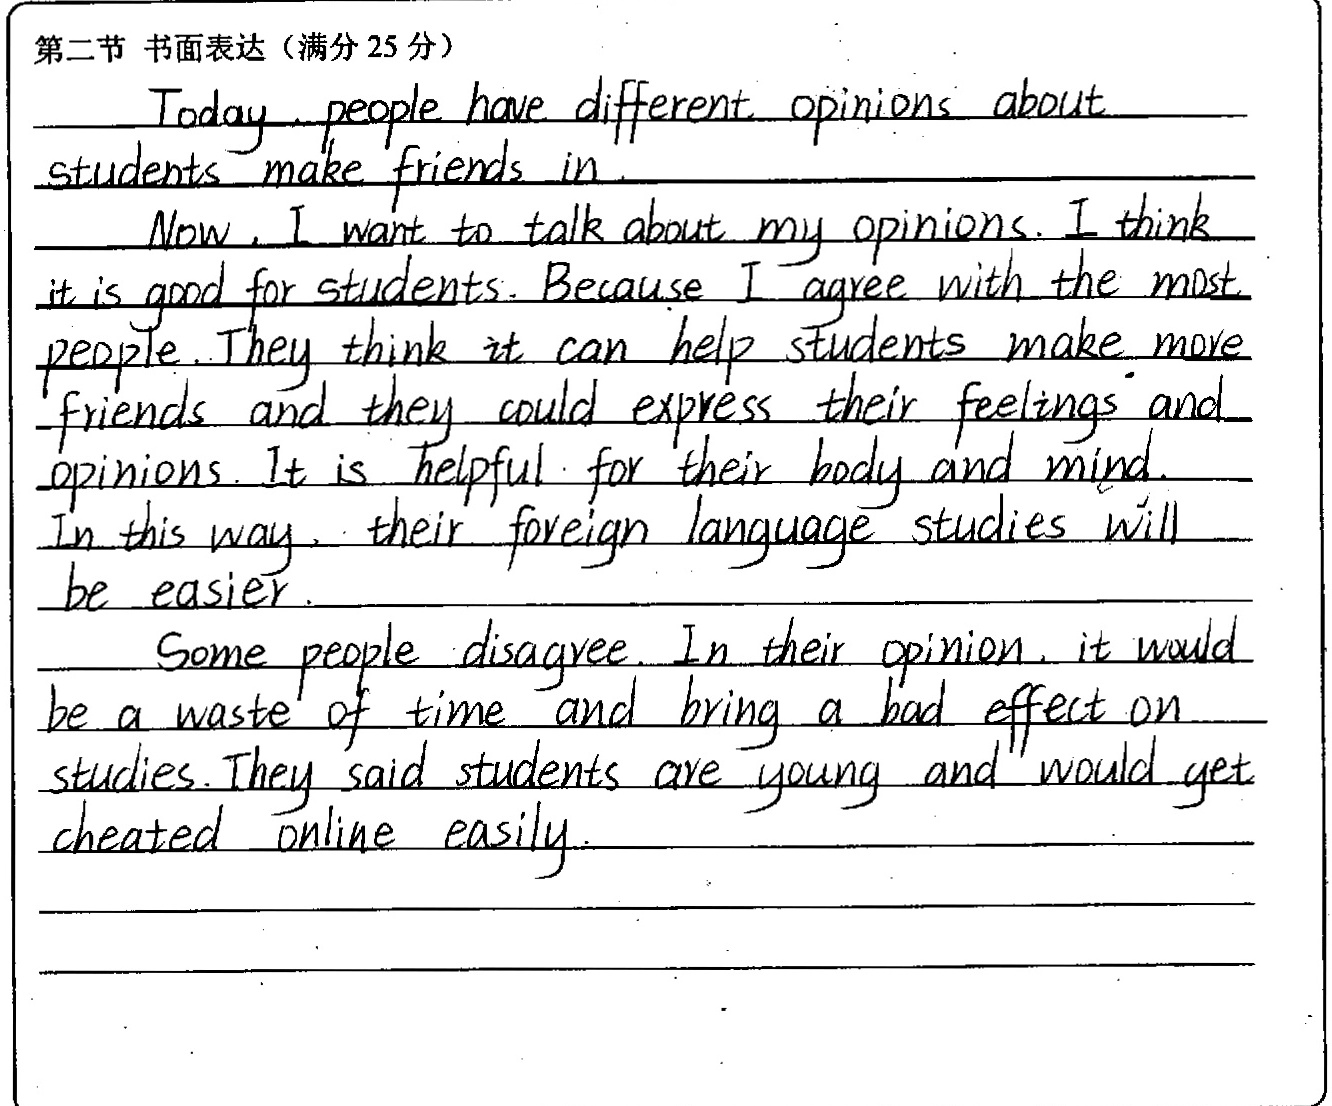 第二节 书面表达（满分 25 分）
Today, people have different opinions about
students make friends in.
Now, I want to talk about my opinions. I think
it is good for students. Because I agree with the most
people. They think it can help students make more
friends and they could express their feelings and
opinions. It is helpful for their body and mind.
In this way, their foreign language studies will
be easier.
Some people disagree. In their opinion, it would
be a waste of time and bring a bad effect on
studies. They said students are young and would get
cheated online easily.